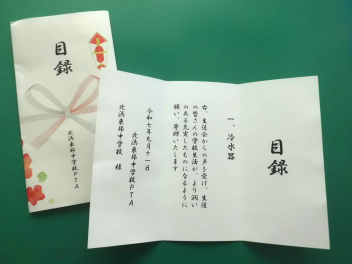 目録
北浜東部中学校PTA
目録
一、冷水器
右、生徒会からの声を受け、生徒
の皆さんの学校生活が、より潤い
のある充実したものになるように
願い、寄贈いたします
令和七年九月十一日
北浜東部中学校PTA
北浜東部中学校 様